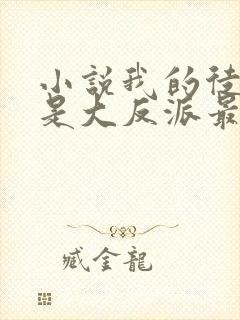 小説我的徒
是大反派最
臧金龍